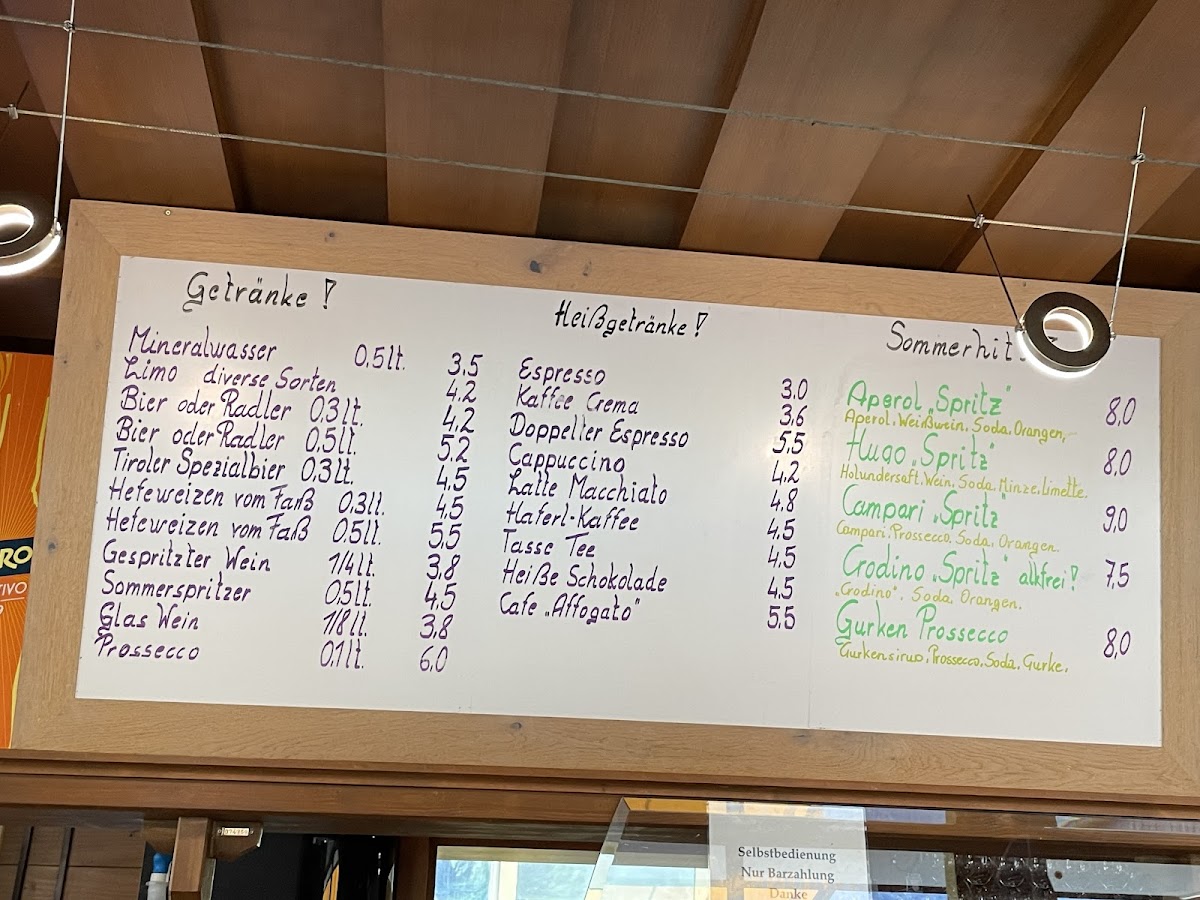 Getränke!
Mineralwasser 0,5lt. 3,5
Limo diverse Sorten 4,2
Bier oder Radler 0,3lt. 4,2
Bier oder Radler 0,5lt. 5,2
Tiroler Spezialbier 0,3lt. 4,5
Hefeweizen vom Faß 0,3lt. 4,5
Hefeweizen vom Faß 0,5lt. 5,5
Gespritzter Wein 1/4lt. 3,8
Sommerspritzer 0,5lt. 4,5
Glas Wein 1/8lt. 3,8
Prossecco 0,1lt. 6,0
Heißgetränke!
Espresso 3,0
Kaffee Crema 3,6
Doppelter Espresso 5,5
Cappuccino 4,2
Latte Macchiato 4,8
Haferl-Kaffee 4,5
Tasse Tee 4,5
Heiße Schokolade 4,5
Cafe „Affogato" 5,5
Sommerhit
Aperol „Spritz" 8,0
Aperol, Weißwein, Soda, Orangen,
Hugo „Spritz" 8,0
Holundersaft, Wein, Soda, Minze, Limette.
Campari „Spritz" 9,0
Campari, Prossecco, Soda, Orangen.
Crodino „Spritz" alkfrei! 7,5
„Crodino", Soda, Orangen.
Gurken Prossecco 8,0
Gurkensirup, Prossecco, Soda, Gurke,
RO
TIVO
9
Selbstbedienung
Nur Barzahlung
Danke